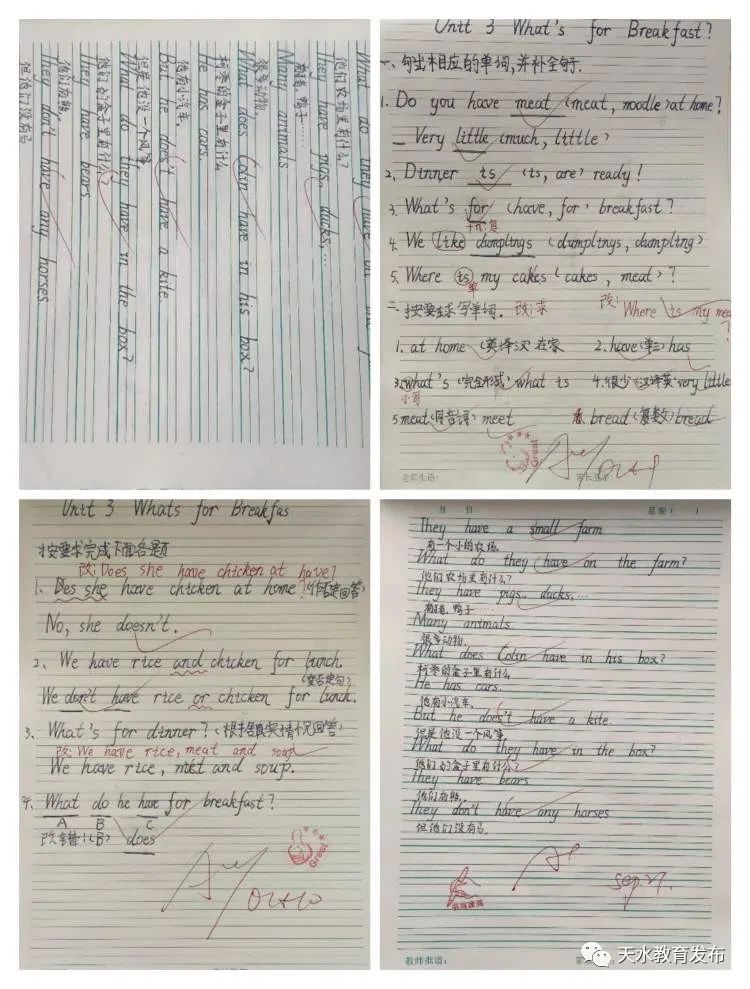 What do they have on the f
他们农场里有什么?
They have pigs, ducks,...
Many animals
很多动物.
What does Colin have in his box?
柯零的盒子里有什么
He has cars.
他有小汽车.
But he does't have a kite
但是他没一个风筝
What do they have in the box?
他们的盒子里有什么?
They have bears
他们有熊.
They don't have any horses
但他们没有马
Unit 3 What's for Breakfast?
一、勾出相应的单词,并补全句子.
1. Do you have meat (meat, noodle) at home?
Very little (much, little)
2. Dinner is (is, are) ready!
3. What's for (have, for) breakfast?
4. We like dumplings (dumplings, dumpling)
5. Where is my cakes (cakes, meat)?
二、按要求写单词. 改:求 改: Where is my mea
1. at home (英译汉) 在家 2. have (单三) has
3. what's (完全形式) what is 4. 很少 (汉译英) very little
5 meat (同音词) meet bread (复数) bread
Great
Oct 9
老师批语: 家长
Unit 3 Whats for Breakfas
按要求完成下面各题
改: Does she have chicken at have?
1. Des she have chicken at home? (作否定回答)
No, she doesn't.
2. We have rice and chicken for lunch.
(变否定句)
We don't have rice or chicken for lunch.
3. What's for dinner? (根据真实情况回答)
改: We have rice, meat and soup
We have rice, met and soup.
4. What do he have for breakfast?
A B C
改错: (B) does
Great
Oct 10
月 日 星期 ( )
They have a small farm
有一个小的农场.
What do they have on the farm?
他们农场里有什么?
They have pigs, ducks,...
Many animals
很多动物.
What does Colin have in his box?
柯零的盒子里有什么
He has cars.
他有小汽车.
But he does't have a kite.
但是他没一个风筝.
What do they have in the box?
他们的盒子里有什么?
They have bears
他们有熊.
They don't have any horses
但他们没有马.
Sep 27.
教师批语:
天水教育发布